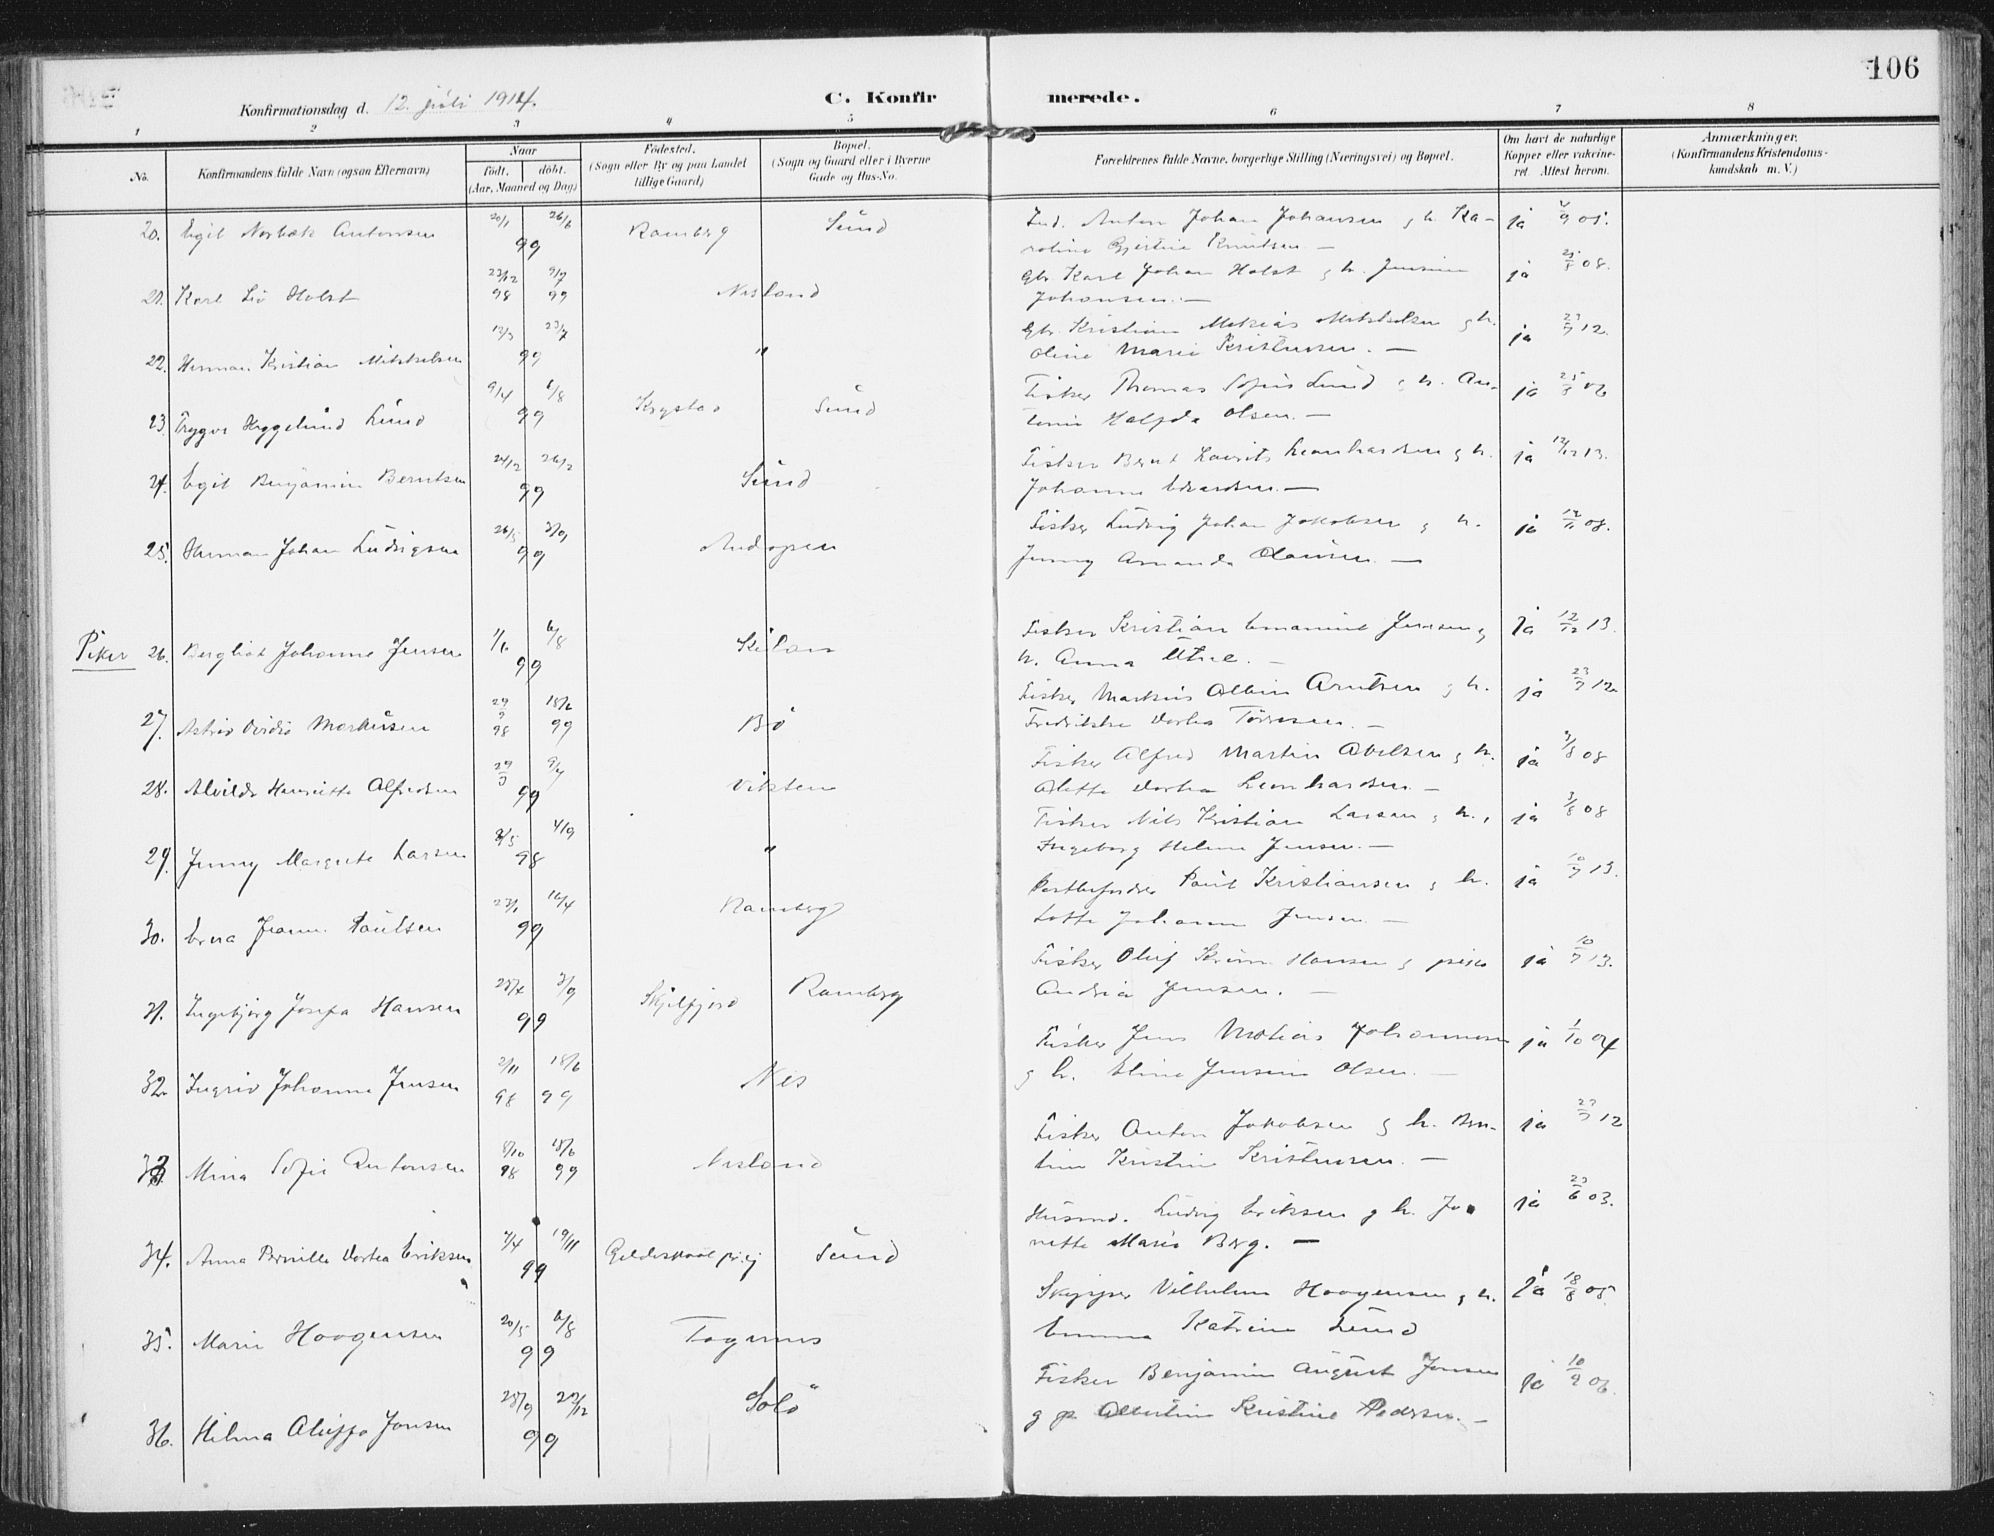 106
Konfirmationsdag d. 12. juli 1914.
C. Konfir merede.
1 2 3 4 5 6 7 8
No.
Konfirmandens fulde Navn (ogsaa Efternavn)
Naar
födt. döbt.
(Aar, Maaned og Dag)
Födested.
(Sogn eller By og paa Landet
tillige Gaard)
Bopæl.
(Sogn og Gaard eller i Byerne
Gade og Hus-No.
Forældrenes fulde Navne, borgerlige Stilling (Næringsvei) og Bopæl.
Om havt de naturlige
Kopper eller vakcine-
ret. Attest herom.
Anmærkninger.
(Konfirmandens Kristendoms-
kundskab m. V.)
20. Egil Norbæk Antonsen 20/1 26/6 99 Ramberg Sund Anton Johan Johansen g h. Ka- ja
roline Knutsen. —
21. Karl Holst 23/12 98 9/7 99 Nesland Gbr. Karl Johan Holst g h. Jensine ja 25/8 08.
Johansen. —
22. Herman Kristian Mikkelsen 12/3 23/7 99 " Gbr. Kristian Mikkelsen g h. ja 23/7 12.
Oline Marie Kristensen. —
23. Trygve Hyggelund Lund 9/4 6/8 99 Sund Fisker Thomas Sofus Lund g h. An- ja 25/8 06
tonie Halfda Olsen. —
24. Egil Benjamin Berntsen 24/12 26/2 99 Sund Fisker Bernt Laurits Leonhardsen g h. ja 12/12 13.
Johanne Edvardsen. —
25. Herman Johan Ludvigsen 26/5 3/9 99 Andopen Fisker Ludvig Johan Jakobsen g h. ja 08.
Jenny Amanda —
Piker
26. Bergliot Johanne Jensen 1/6 6/8 99 Kilan Fisker Kristian Emanuel Jensen g ja 12/12 13.
h. Anna —
27. Astrid Markusen 29/9 98 18/6 99 Bö Fisker Markus Albin Arntsen g h. ja 23/7 12
Fredrikke Dorthea Tørresen. —
28. Alvilde Henriette Alfredsen 29/3 9/7 99 Vikten Fisker Alfred Martin Abelsen g h. ja 3/8 08
Dorthea Leonhardsen. —
29. Jenny Margrete Larsen 2/5 4/9 98 " Fisker Nils Kristian Larsen g h. ja 3/8 08
Ingeborg Helene Jensen. —
30. Erna Paulsen 23/1 16/4 99 Ramberg Paul Kristiansen g h. ja 10/7 13.
Lotte Johanne Jensen. —
31. Ingebjörg Josefa Hansen 3/9 99 Skjelfjord Ramberg Fisker Oluf Hansen g pike ja 10/7 13.
Andrea Jensen. —
32. Ingrid Johanne Jensen 2/11 98 18/6 99 Nes Fisker Jens Matias Johannesen ja 1/10 04
g h. Elina Jensine Olsen. —
33. Mina Sofie Antonsen 8/10 98 18/6 99 Nesland Fisker Anton Jakobsen g h. Ber- ja 23/7 12
tine Kristine Kristensen. —
34. Anna Pernille Dortea Eriksen 7/4 19/11 99 Gildeskaal Sund Husmd. Ludvig Eriksen g h. Jo- ja 03.
nette Marie Berg. —
35. Marie Haagensen 20/5 6/8 99 Skipper Vilhelm Haagensen g h. Ja 18/8 05.
Emma Katrine Lund
36. Hilma Jonsen 99 Solö Fisker Benjamin August Jonsen ja 10/9 06.
g Albertine Kristine Pedersen. —